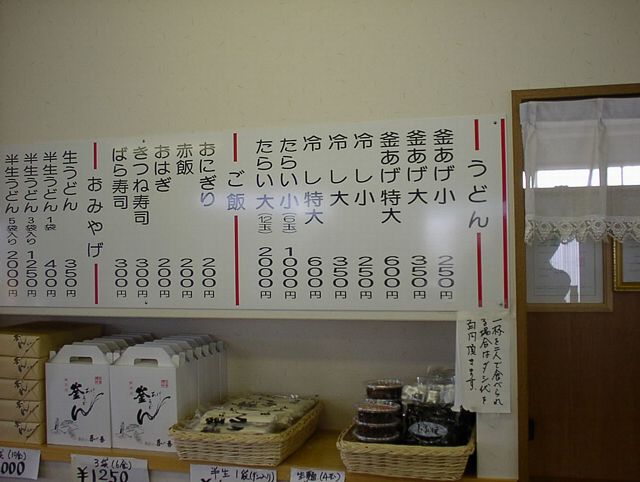 うどん
釜あげ小 250円
釜あげ大 350円
釜あげ特大 600円
冷し小 250円
冷し大 350円
冷し特大 600円
たらい小(6玉) 1000円
たらい大(12玉) 2000円
ご飯
おにぎり 200円
赤飯 200円
おはぎ 200円
きつね寿司 300円
ばら寿司 300円
おみやげ
生うどん 350円
半生うどん 1袋 400円
半生うどん 3袋入り 1250円
半生うどん 5袋入り 2000円
一杯を二人で食べられ
る場合はダシ代を
百円頂きます。
釜あげうどん
釜あげうどん
000
3袋(6食)
¥1250
半生 1袋